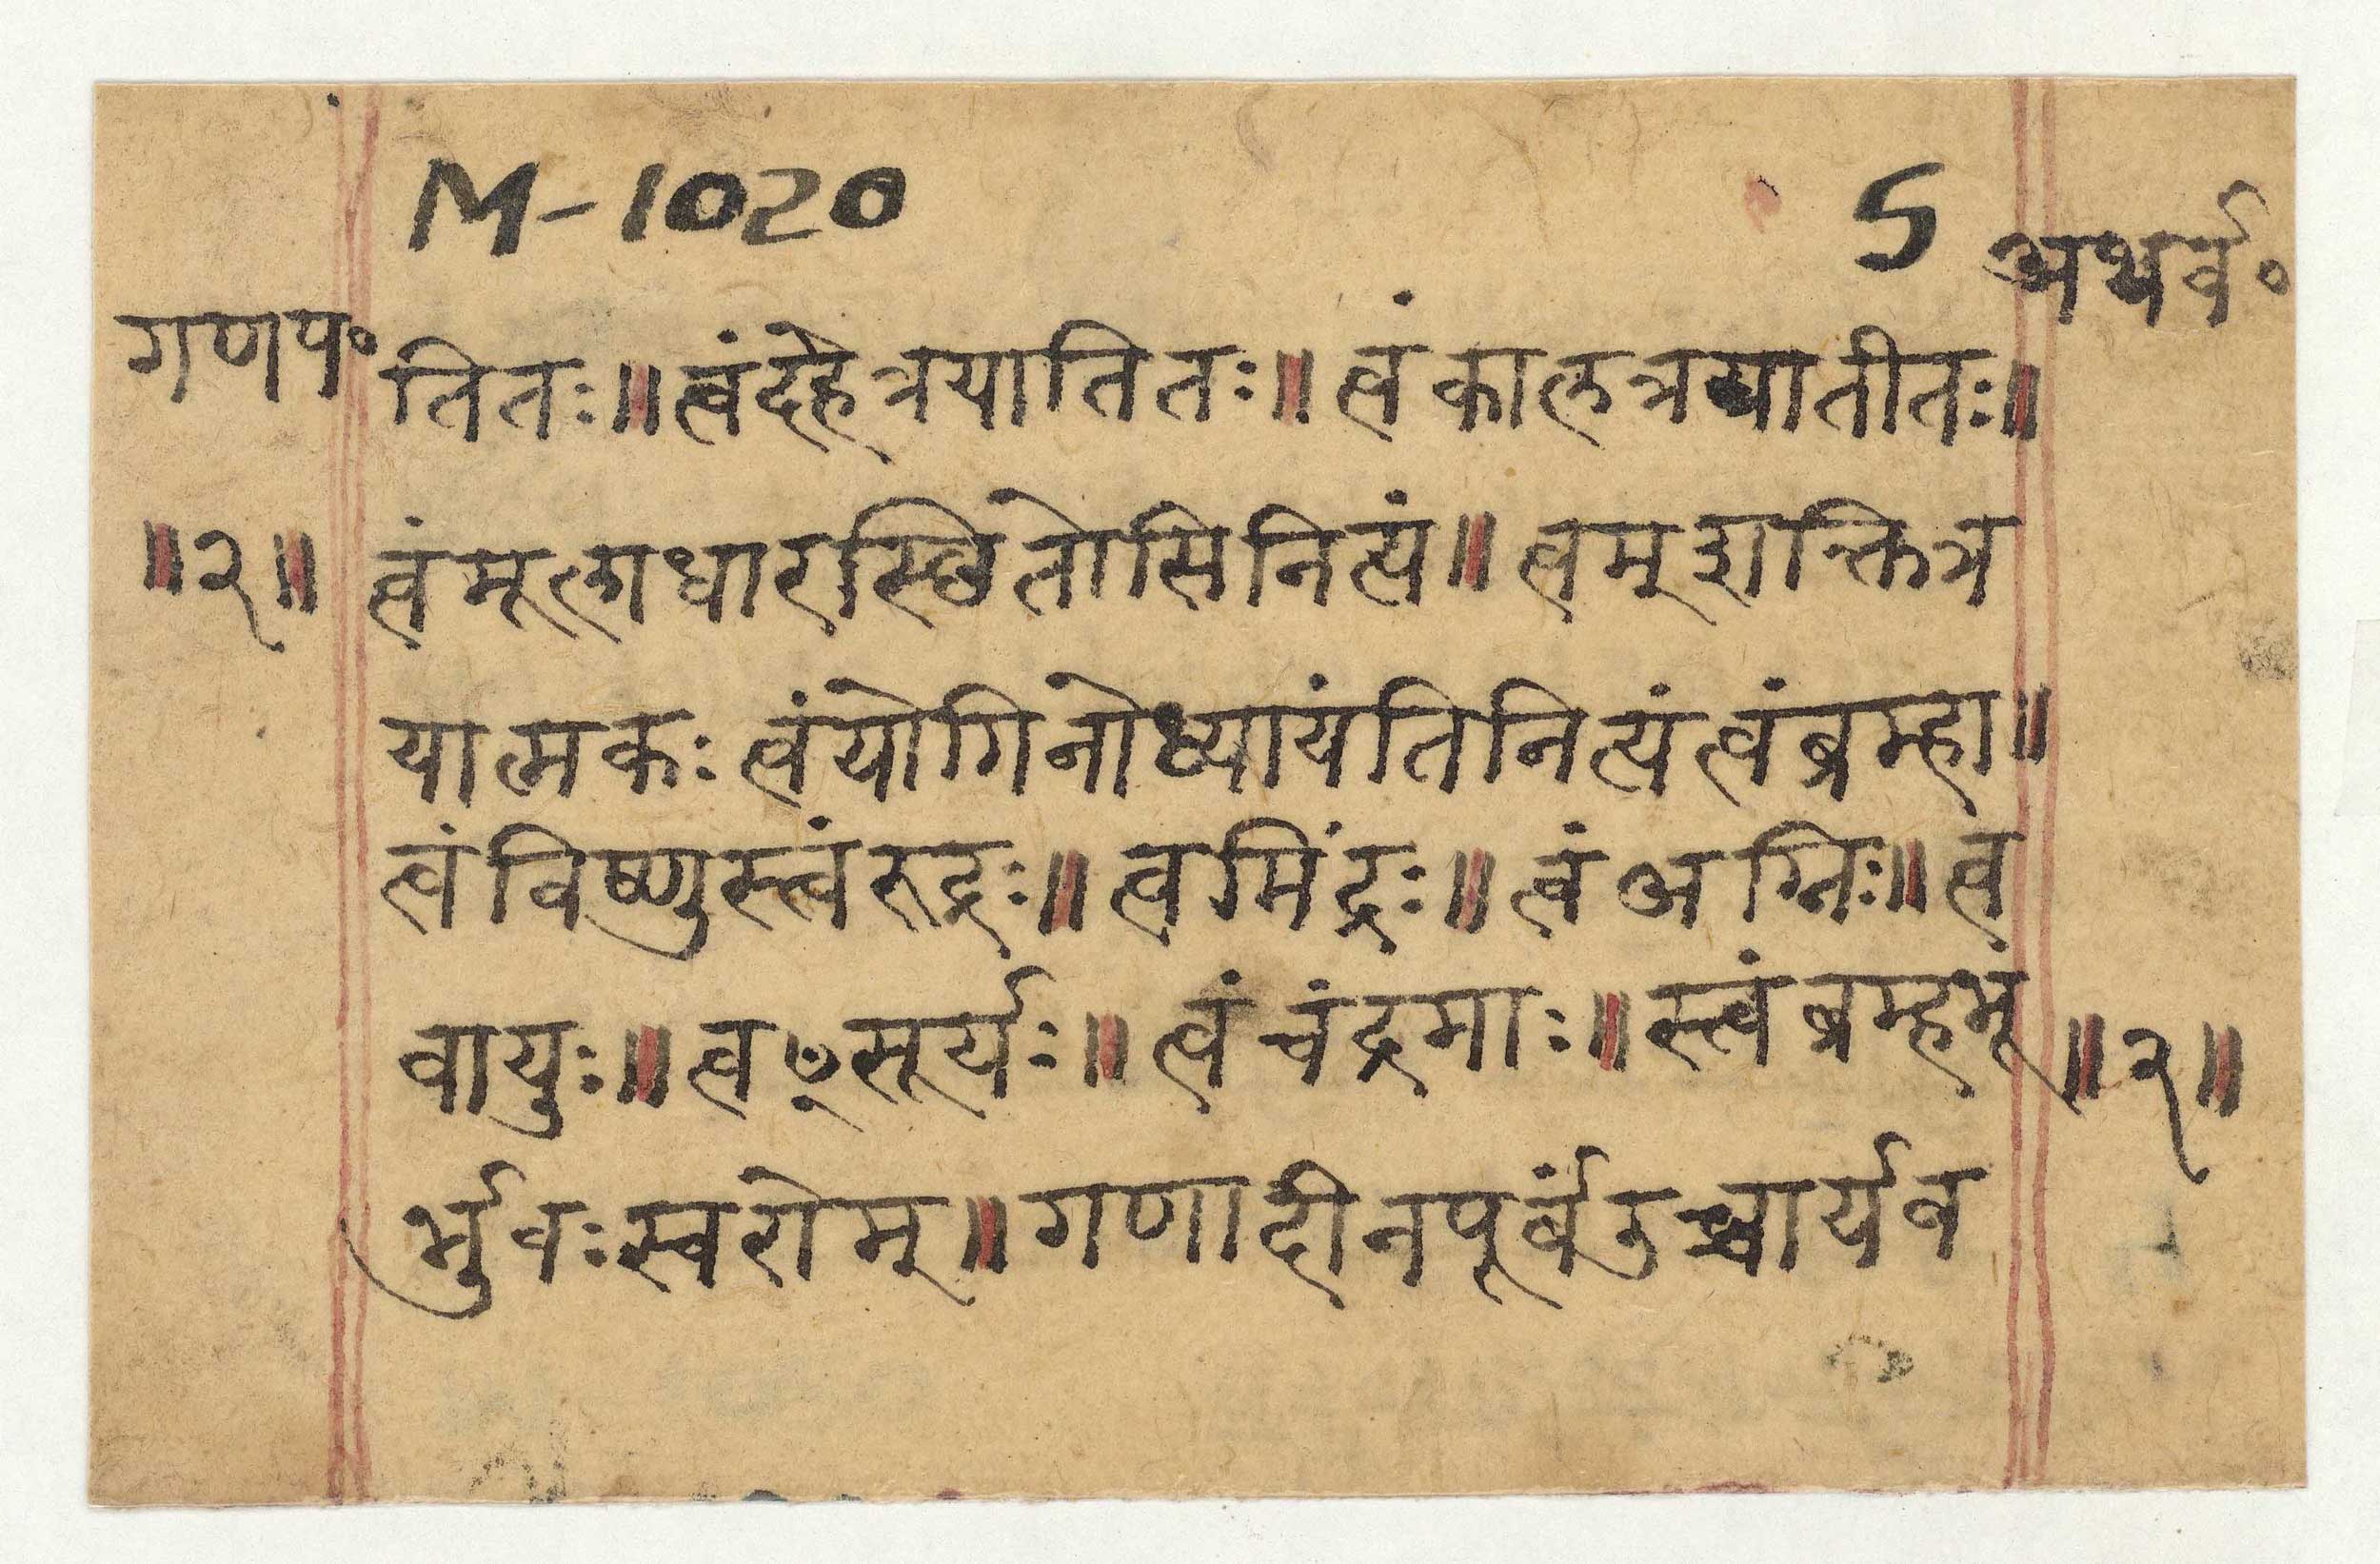 M-1020
5
अथर्व॰
गणप॰
तितः॥ त्वंदेहत्रयातितः॥ त्वंकालत्रयातीतः॥
॥२॥
त्वंमूलाधारस्छितोसिनित्यं॥ त्वम् शक्तित्र
यात्मकः त्वंयोगिनोध्यायंतिनित्यंत्वंब्रम्हा॥
त्वंविष्णुस्त्वंरुद्रः॥ त्वमिंद्रः॥ त्वंअग्निः॥ त्व
वायुः॥ त्वꣳसूर्यः॥ त्वंचंद्रमाः॥ स्त्वंब्रम्हभू
॥२॥
र्भुवःस्वरोम्॥ गणादीनपूर्वंउच्चार्यव